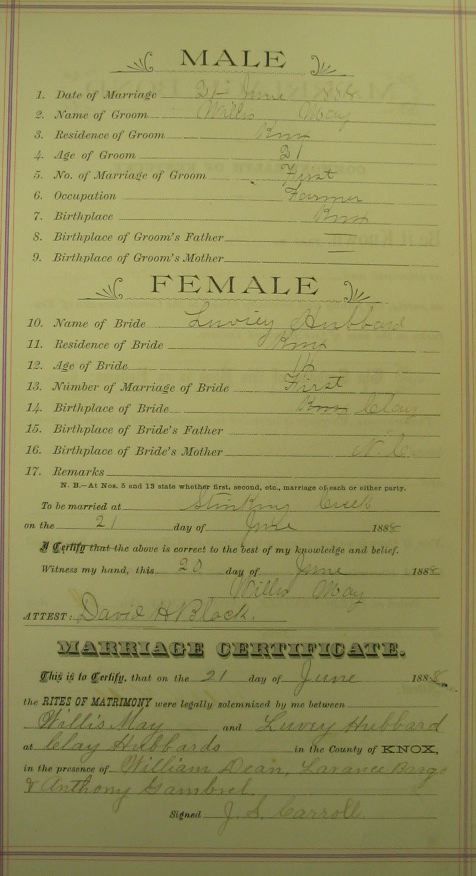 MALE
1. Date of Marriage 21 June 1888
2. Name of Groom Willis May
3. Residence of Groom Knox
4. Age of Groom 21
5. No. of Marriage of Groom First
6. Occupation Farmer
7. Birthplace Knox
8. Birthplace of Groom's Father
9. Birthplace of Groom's Mother
FEMALE
10. Name of Bride Luviey Hubbard
11. Residence of Bride Knox
12. Age of Bride
13. Number of Marriage of Bride First
14. Birthplace of Bride Knox Clay
15. Birthplace of Bride's Father
16. Birthplace of Bride's Mother N. C.
17. Remarks
N. B.—At Nos. 5 and 13 state whether first, second, etc., marriage of each or either party.
To be married at Stinking Creek
on the 21 day of June 1888
I Certify that the above is correct to the best of my knowledge and belief.
Witness my hand, this 20 day of June 1888
Willis May
ATTEST: David H Black.
MARRIAGE CERTIFICATE.
This is to Certify, that on the 21 day of June 1888
the RITES OF MATRIMONY were legally solemnized by me between
Willis May and Luvey Hubbard
at Clay Hubbards in the County of KNOX,
in the presence of William Dean, Larance
& Anthony Gambrel
Signed J. S. Carroll